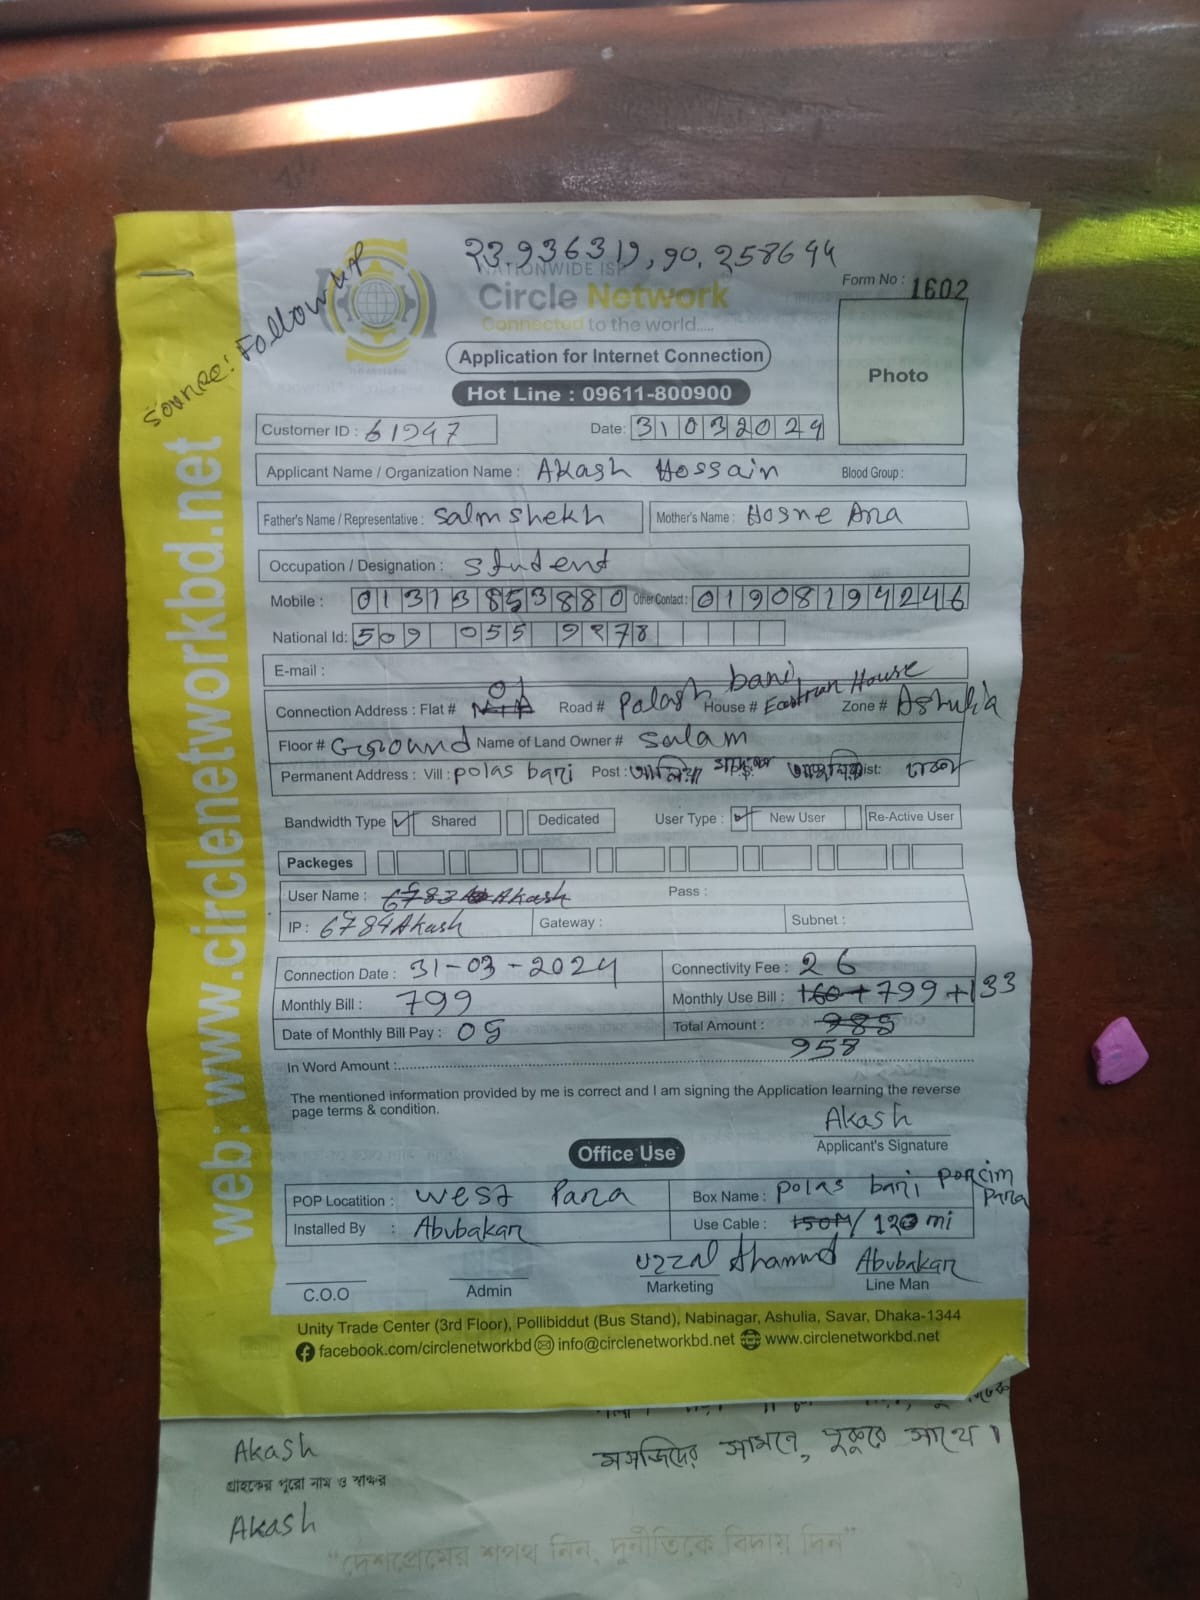 23.936319, 90.258644
NATIONWIDE ISP
Circle Network
Connected to the world.....
Form No : 1602
Source: Follow up
Photo
Application for Internet Connection
Hot Line : 09611-800900
Customer ID : 61947 Date: 31032024
Applicant Name / Organization Name : Akash Hossain Blood Group :
Father's Name / Representative : Salm shekh Mother's Name : Hosne Ara
Occupation / Designation : Student
Mobile : 01313853880 Other Contact : 01908194246
National Id: 509 055 9978
E-mail :
Connection Address : Flat # 01 Road # Palash bari House # Eastrun House Zone # Ashulia
Floor # Ground Name of Land Owner # Salam
Permanent Address : Vill : polas bari Post : Dist: ঢাকা
Bandwidth Type ✓ Shared Dedicated User Type : ✓ New User Re-Active User
Packeges
User Name : 6783 Akash Pass :
IP : 6784Akash Gateway : Subnet :
Connection Date : 31-03-2024 Connectivity Fee : 26
Monthly Bill : 799 Monthly Use Bill : 160+ 799 +133
Date of Monthly Bill Pay : 05 Total Amount : 985
958
In Word Amount :
The mentioned information provided by me is correct and I am signing the Application learning the reverse
page terms & condition.
Akash
Applicant's Signature
Office Use
POP Locatition : West Para Box Name : polas bari porcim para
Installed By : Abubakar Use Cable : 150M/ 120 mi
Uzzal Ahammd Abubakar
C.O.O Admin Marketing Line Man
Unity Trade Center (3rd Floor), Pollibiddut (Bus Stand), Nabinagar, Ashulia, Savar, Dhaka-1344
facebook.com/circlenetworkbd info@circlenetworkbd.net www.circlenetworkbd.net
web: www.circlenetworkbd.net
মসজিদের সামনে, পুকুরে সাথে।
Akash
গ্রাহকের পুরো নাম ও স্বাক্ষর
Akash
“দেশপ্রেমের শপথ নিন, দুর্নীতিকে বিদায় দিন”